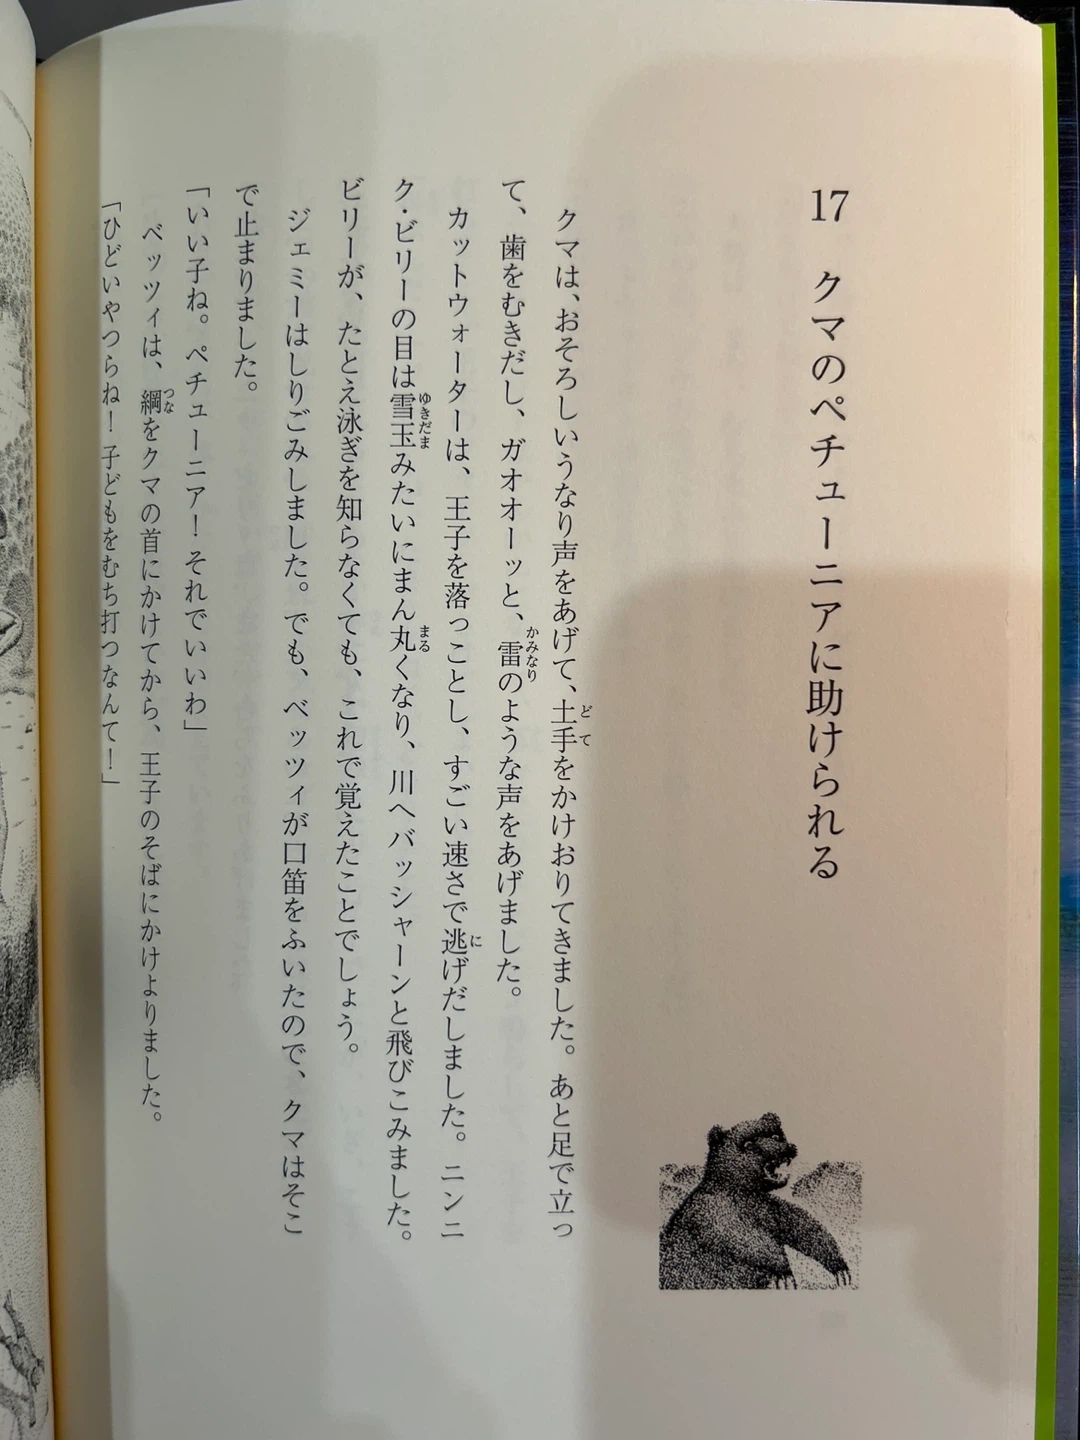 17 クマのペチューニアに助けられる
クマは、おそろしいうなり声をあげて、土手をかけおりてきました。あと足で立っ
て、歯をむきだし、ガオオーッと、雷のような声をあげました。
カットウォーターは、王子を落っことし、すごい速さで逃げだしました。ニンニ
ク・ビリーの目は雪玉みたいにまん丸くなり、川へバッシャーンと飛びこみました。
ビリーが、たとえ泳ぎを知らなくても、これで覚えたことでしょう。
ジェミーはしりごみしました。でも、ベッツィが口笛をふいたので、クマはそこ
で止まりました。
「いい子ね。ペチューニア！それでいいわ」
ベッツィは、綱をクマの首にかけてから、王子のそばにかけよりました。
「ひどいやつらね！子どもをむち打つなんて！」